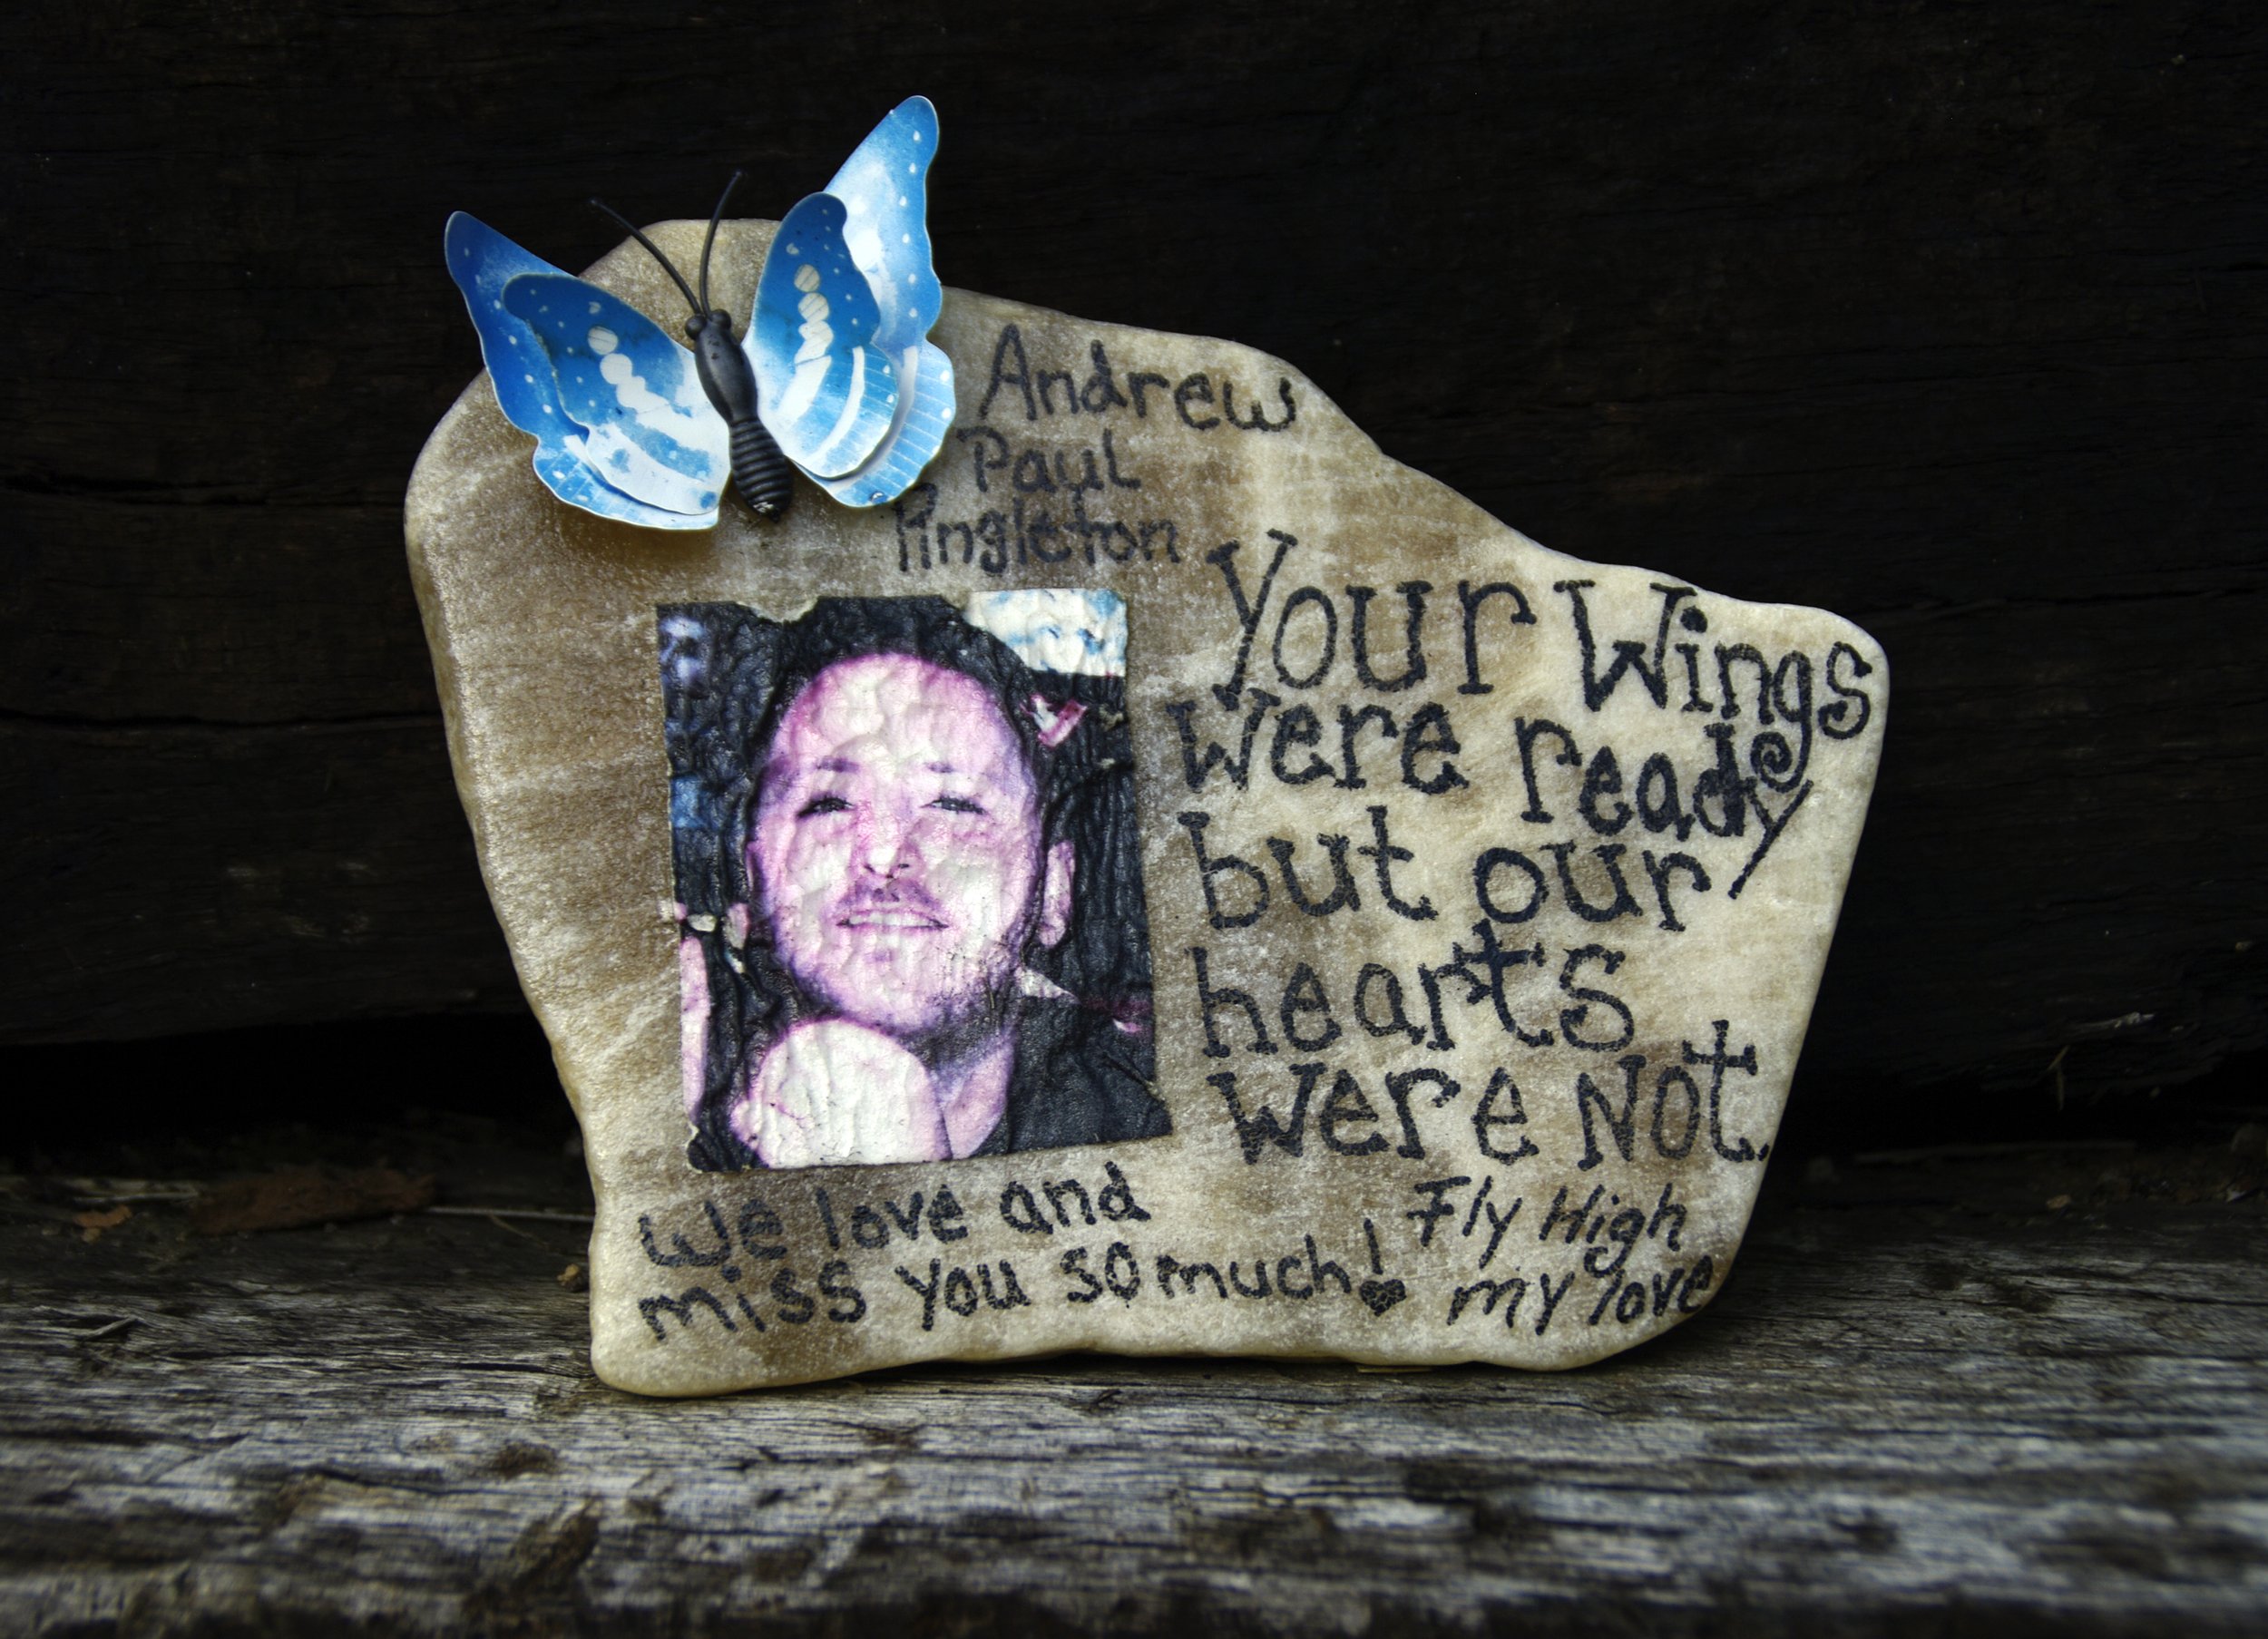 Andrew
Paul
Pingleton
Your Wings
were ready
but our
hearts
were Not.
We love and
miss you so much!
Fly High
my love